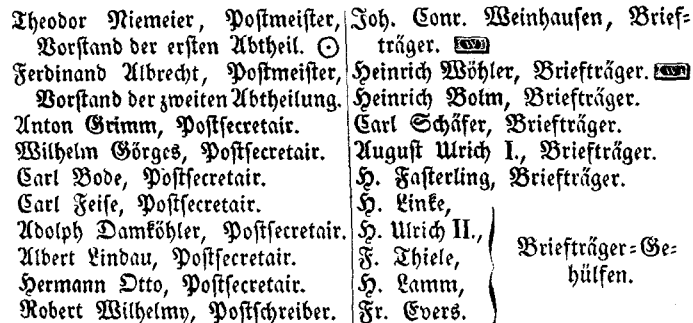 Theodor Niemeier, Postmeister,
Vorstand der ersten Abtheil. ⊙
Ferdinand Albrecht, Postmeister,
Vorstand der zweiten Abtheilung.
Anton Grimm, Postsecretair.
Wilhelm Görges, Postsecretair.
Carl Bode, Postsecretair.
Carl Feise, Postsecretair.
Adolph Damköhler, Postsecretair.
Albert Lindau, Postsecretair.
Hermann Otto, Postsecretair.
Robert Wilhelmy, Postschreiber.
Joh. Conr. Weinhausen, Brief-
träger.
Heinrich Wöhler, Briefträger.
Heinrich Bolm, Briefträger.
Carl Schäfer, Briefträger.
August Ulrich I., Briefträger.
H. Fasterling, Briefträger.
H. Linke,
H. Ulrich II.,
F. Thiele,
H. Lamm,
Fr. Evers.
Briefträger-Ge-
hülfen.